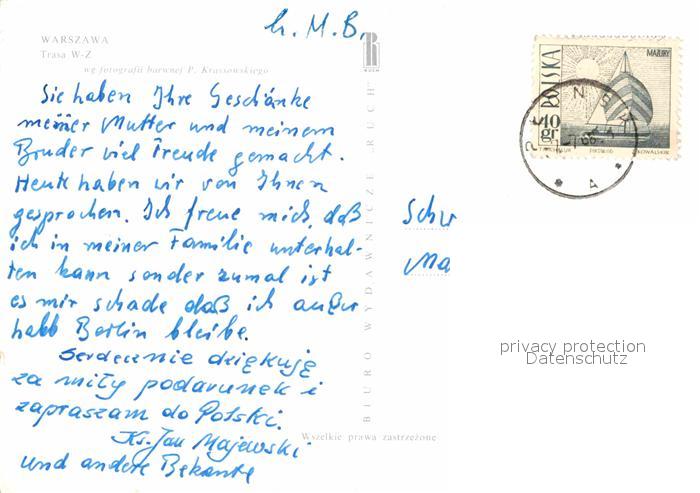 h. M. B.
WARSZAWA
Trasa W-Z
wg fotografii barwnej P. Krassowskiego
RUCH
Sie haben Ihre Geschänke
meiner Mutter und meinem
Bruder viel Freude gemacht.
Heute haben wir von Ihnen
gesprochen. Ich freue mich, daß
ich in meiner Familie unterhal-
ten kann sonder zumal ist
es mir schade daß ich außer
halb Berlin bleibe.
Serdecznie dziękuję
za miły podarunek i
zapraszam do Polski.
Ks. Jan Majewski
und andere Bekante
BIURO WYDAWNICZE RUCH
Wszelkie prawa zastrzeżone
POLSKA
MAZURY
40 gr
KOWALSKI
A
Schw
Ma
privacy protection
Datenschutz